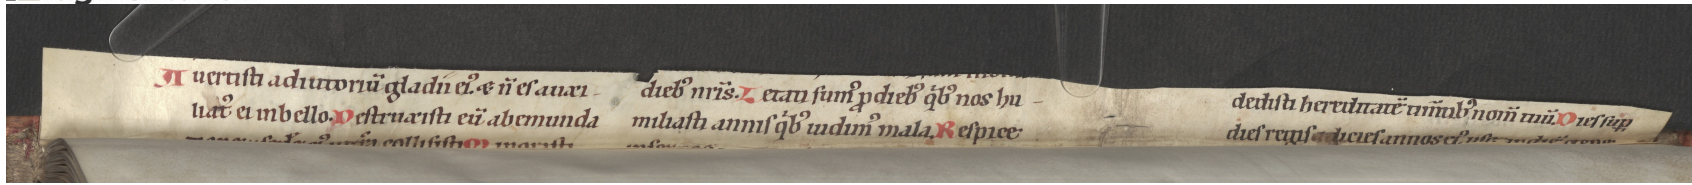 Auertisti adiutoriū gladii ei⁹. & n̄ es auxi-
liat⁹ ei in bello. Destruxisti eū ab emunda
collisisti Minorasti
dieb⁹ nr̄is. Letati sum⁹ p dieb⁹ q̇b⁹ nos hu-
miliasti annis q̇b⁹ uidim⁹ mala. Respice
dedisti hereditatē timētib⁹ nom̄ tuū. Dies sup
dies regis adicies annos ei⁹ usq;